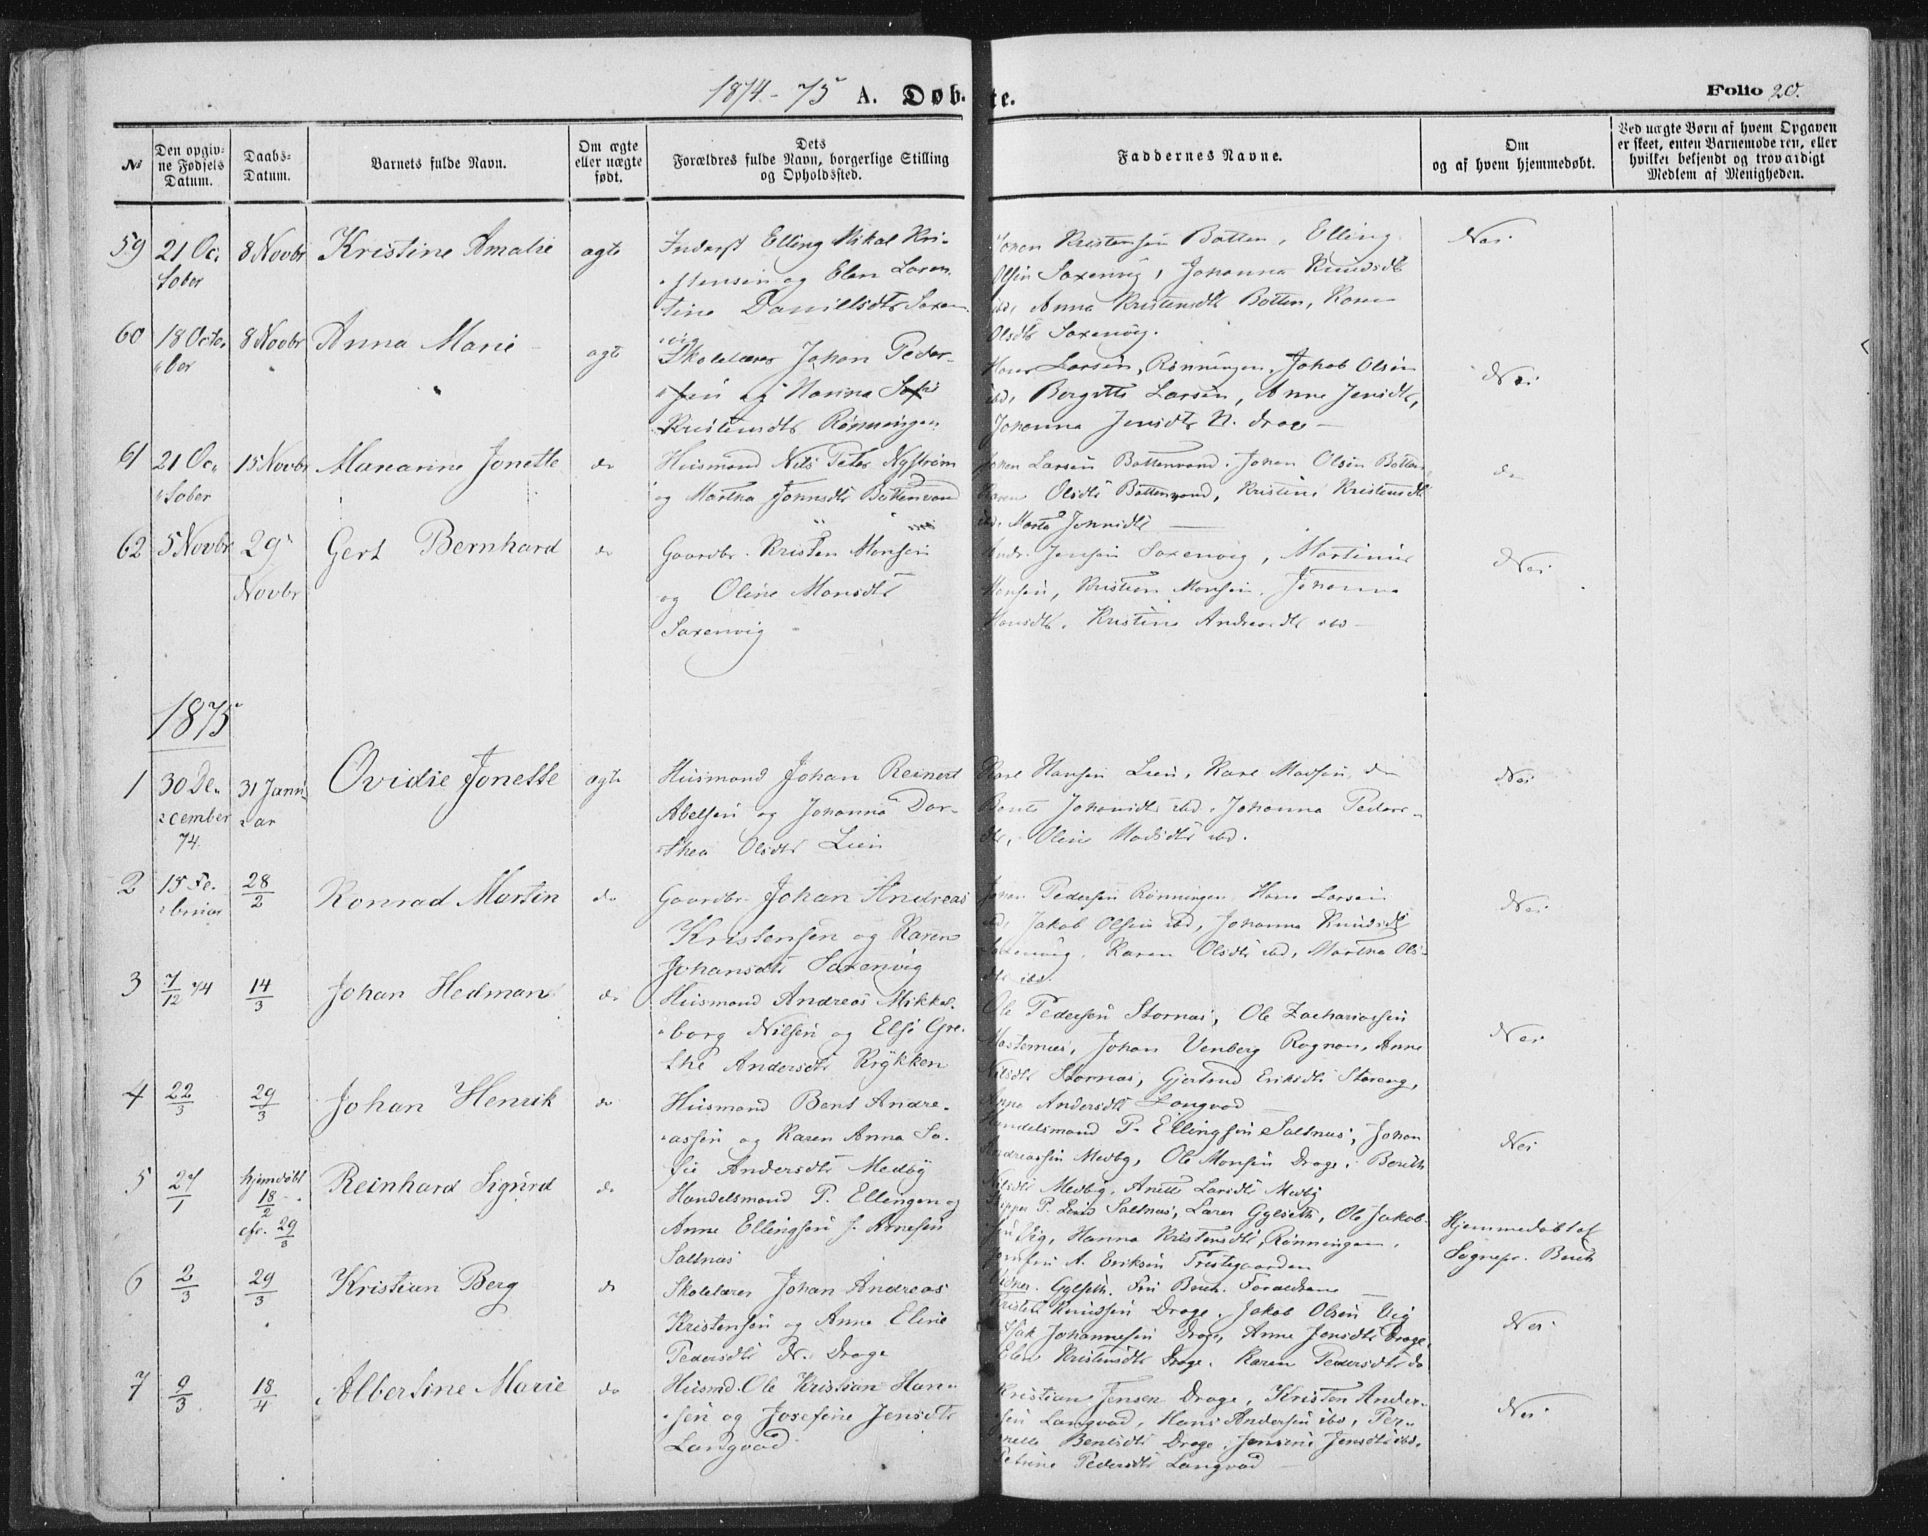 1874-75 A. Døbte. Folio 20.
No
Den opgivne Fødsels Datum.
Daabs-Datum.
Barnets fulde Navn.
Om ægte eller uægte født.
Dets Forældres fulde Navn, borgerlige Stilling og Opholdssted.
Faddernes Navne.
Om og af hvem hjemmedøbt.
Ved uægte Børn af hvem Opgaven er skeet, enten Barnemoderen, eller hvilket bekjendt og troværdigt Medlem af Menigheden.
59 21 Oc, 8 Novbr Kristine Amalie ægte Inderst Elling Mikal Kri-
tober stensen og Elen Loren
tine Danielsdtr Saxen
vig
Johan Kristensen Botten, Elling
Olsen Saxenvig, Johanna Knudsdtr
ibd, Anna Kristensdtr Botten, Karen
Olsdtr Saxenvig.
Nei
60 18 Octo, 8 Novbr Anna Marie ægte Skolelærer Johan Peder-
ber sen og Hanna Sofi
Kristensdtr Rønningen
Hans Larsen, Rønningen, Jakob Olsen
ibd, Bergitte Larsen, Anne Jensdtr,
Johanna Jensdtr N. Drage
Nei
61 21 Oc, 15 Novbr Marianne Jonette do Husmand Nils Peter Nystrøm
tober og Martha Johnsdtr Bottenvand
Johan Larsen Bottenvand. Johan Olsen Botten
Karen Olsdtr Bottenvand, Kristine Kristensdtr
ibd. Marta Johnsdtr
do
62 5 Novbr 29 Gert Bernhard do Gaardbr. Kristen Monsen
Novbr og Oline Monsdtr
Saxenvig
Andr. Jensen Saxenvig, Martinus
Monsen, Kristian Monsen, Johanna
Hansdtr, Kristine Andreasdtr ibd
Nei
1875
1 30 De- 31 Janu- Ovidie Jonette ægte Husmand Johan Reinert
cember ar Abelsen og Johanna Dor-
74. thea Olsdtr Lien
Karl Hansen Lien, Karl Madsen, do
Johansdtr ibd, Johanna Peders-
dtr, Oline Madsdtr ibd.
Nei
2 15 Fe- 28/2 Konrad Martin do Gaardbr. Johan Andreas
bruar Kristensen og Karen
Johansdtr Saxenvig
Johan Pedersen Rønningen, Hans Larsen
ibd, Jakob Olsen ibd, Johanna Knudsdtr
Saxenvig, Karen Olsdtr ibd, Martha Ols-
dtr ibd.
Nei
3 7/12 74 14/3 Johan Hedman do Husmand Andreas Mikkel-
borg Nilsen og Else Gre-
the Andersdtr Krykken
Ole Pedersen Stornæs, Ole Zachariassen
Johan Venberg Rognan, Anne
Nilsdtr Stornæs, Gjertrud Eriksdtr Storeng,
Anna Andersdtr Langvad
Nei
4 22/3 29/3 Johan Henrik do Husmand Bent Andre-
assen og Karen Anna So-
fie Andersdtr Medby
Handelsmand P. Ellingsen Saltnæs, Johan
Andreassen Medby, Ole Monsen Drage, Berith
Nilsdtr Medby, Anette Larsdtr Medby
Nei
5 27/1 hjemdøbt 18/2 cfr. 29/3 Reinhard Sigurd do Handelsmand P. Ellingsen og
Anne Ellingsen f. Arnesen
Saltnæs
Skipper P. Saltnæs, Lærer Gylseth, Ole Jakob-
sen Vig, Hanna Kristensdtr, Rønningen,
A. Eriksen
Gylseth. Fru Buch. Forældrene
Hjemmedøbt af
Sognepr. Buch
6 2/3 29/3 Kristian Berg do Skolelærer Johan Andreas
Kristensen og Anne Eline
Pedersdtr N. Drage
Kristen Knudsen Drage, Jakob Olsen Vig
Isak Johannesen Drage, Anne Jensdtr Drage,
Elen Kristensdtr Drage. Karen Pedersdtr do
Nei
7 9/3 18/4 Albertine Marie do Husmd. Ole Kristian Han-
sen og Josefine Jensdtr
Langvad
Kristian Jensen Drage, Kristen Ander-
sen Langvad, Hans Andersen ibd, Per-
nelle Bentsdtr Drage, Jensine Jensdtr ibd.
Petrine Pedersdtr Langvad
Nei